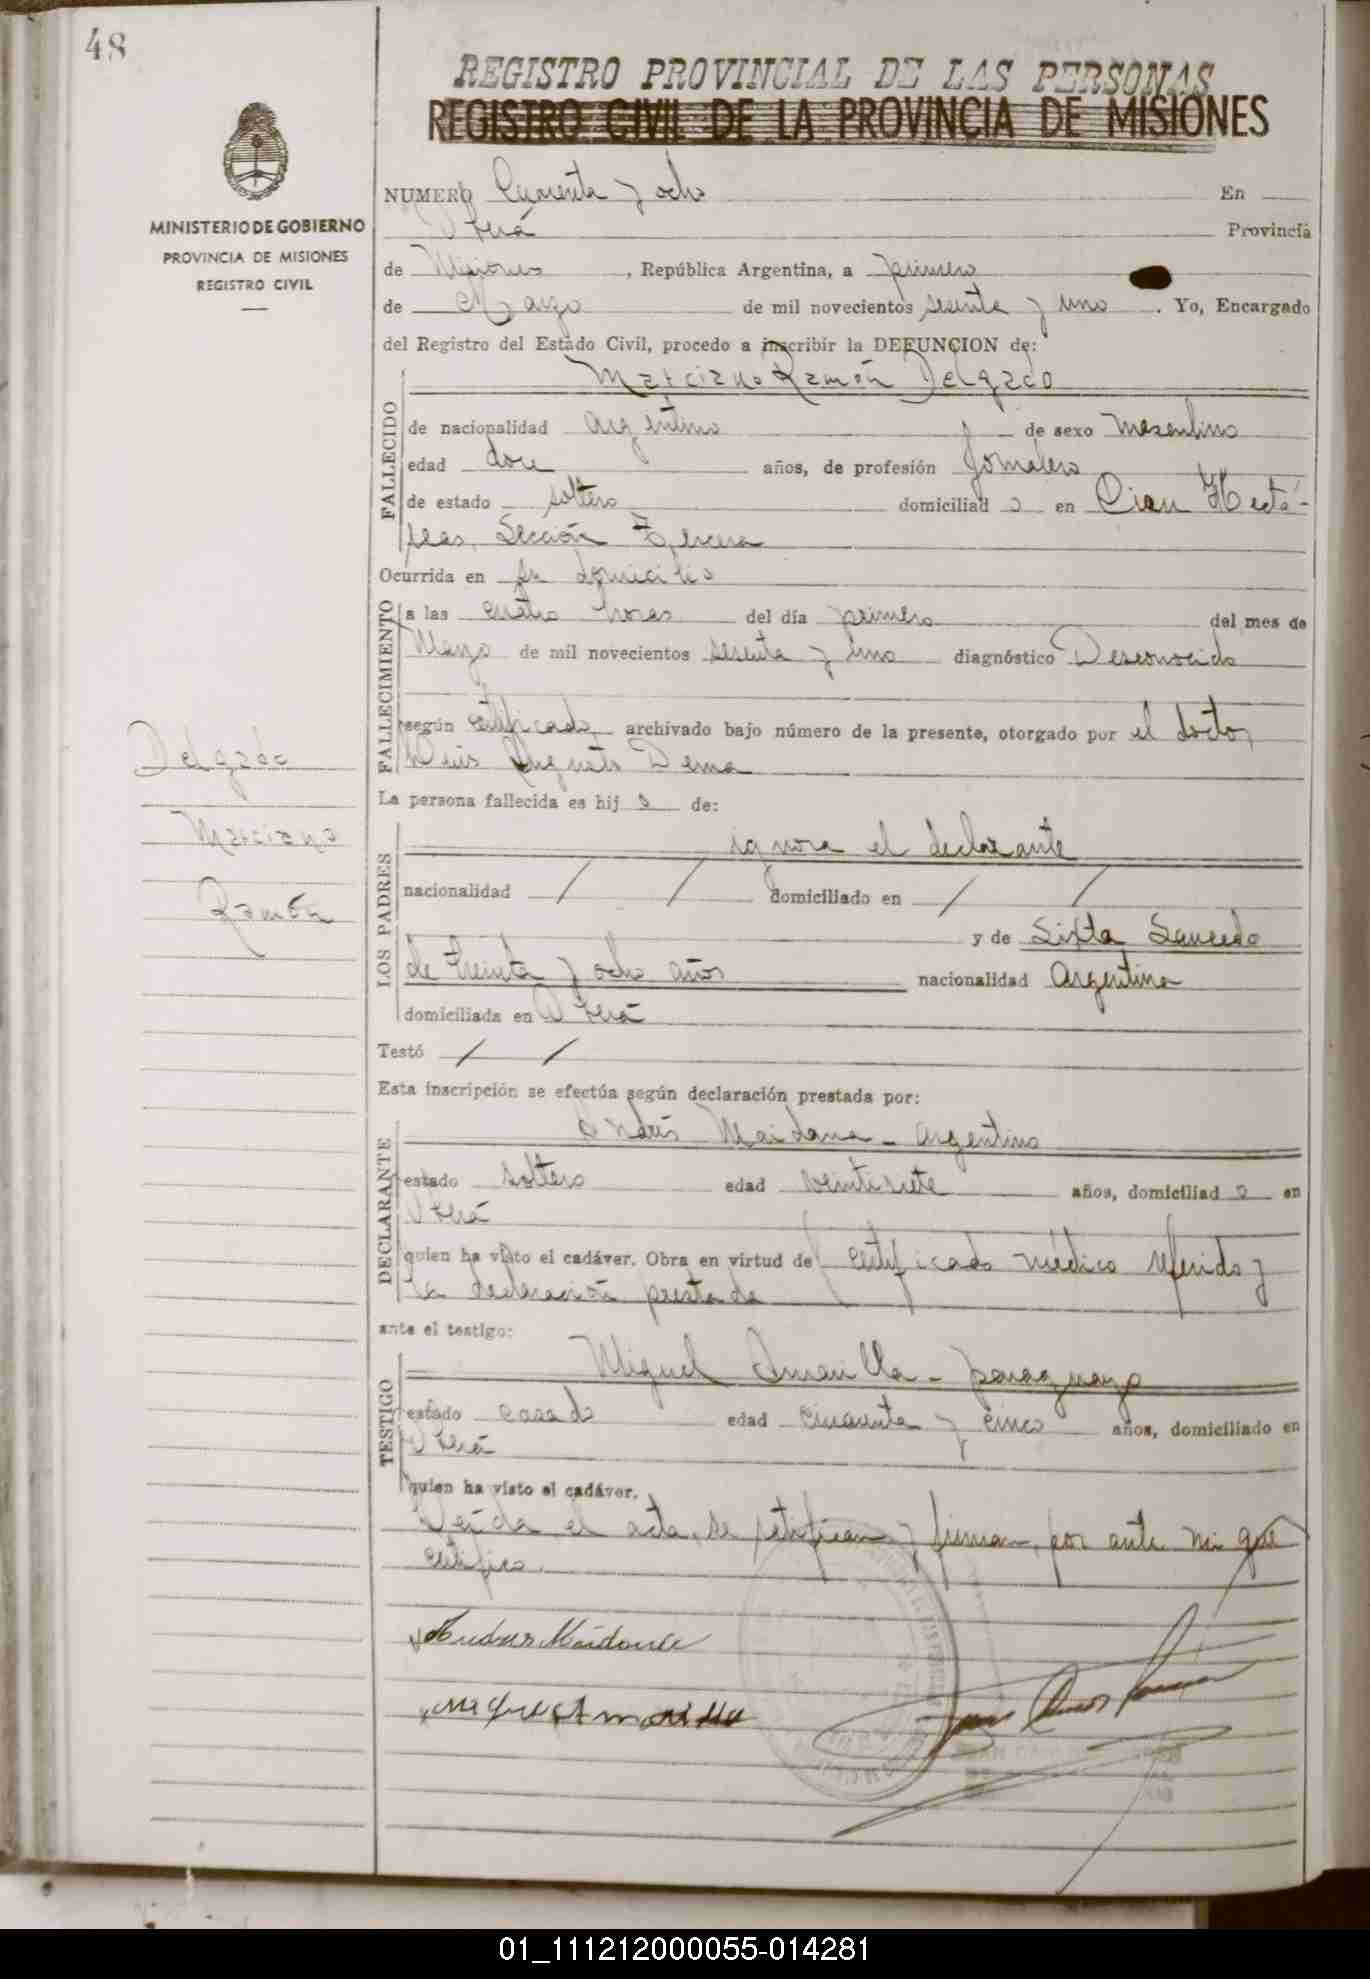 48
REGISTRO PROVINCIAL DE LAS PERSONAS
REGISTRO CIVIL DE LA PROVINCIA DE MISIONES
MINISTERIO DE GOBIERNO
PROVINCIA DE MISIONES
REGISTRO CIVIL
NUMERO Cuarenta y ocho En
Oberá Provincia
de Misiones , República Argentina, a primero
de Mayo de mil novecientos sesenta y uno . Yo, Encargado
del Registro del Estado Civil, procedo a inscribir la DEFUNCION de:
Marciano Ramón Delgado
FALLECIDO
de nacionalidad argentino de sexo masculino
edad doce años, de profesión Jornalero
de estado soltero domiciliad o en Cien Hectá-
reas, Sección Tercera
Ocurrida en su domicilio
FALLECIMIENTO
a las cuatro horas del día primero del mes de
Mayo de mil novecientos sesenta y uno diagnóstico Desconocido
según certificado archivado bajo número de la presente, otorgado por el doctor
Luis Augusto Dema
Delgado
Marciano
Ramón
La persona fallecida es hij o de:
LOS PADRES
ignora el declarante
nacionalidad / / domiciliado en / /
y de Sixta Saucedo
de treinta y ocho años nacionalidad Argentina
domiciliada en Oberá
Testó / /
Esta inscripción se efectúa según declaración prestada por:
DECLARANTE
Andrés Maidana - argentino
estado soltero edad veintisiete años, domiciliad o en
Oberá
quien ha visto el cadáver. Obra en virtud de certificado médico referido y
la declaración prestada
ante el testigo:
TESTIGO
Miguel Amarilla - paraguayo
estado casado edad cincuenta y cinco años, domiciliado en
Oberá
quien ha visto el cadáver.
Leída el acta, se ratifican y firman, por ante mi que
certifico.
Andres Maidana
Miguel Amarilla
01_111212000055-014281